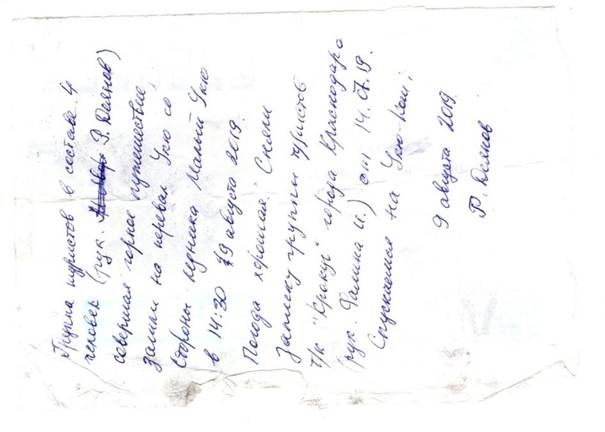 Группа туристов в составе 4
человек (рук. Р. Деянов)
совершая горное путешествие
зашли на перевал Укю со
стороны ледника Малый Укю
в 14:30 9 августа 2019.
Погода хорошая. Сняли
записку группы туристов
т/к "Крокус" города Краснодара
(рук. Фалина И.) от 14.07.19.
Спускаемся на Укю-Кош;
9 августа 2019
Р. Деянов